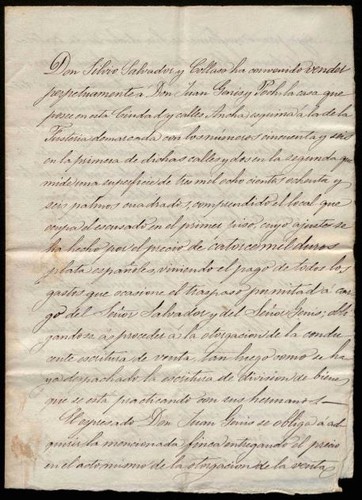 Don Silvio Salvador y Collaso ha convenido vender
perpetuamente a Don Juan Genis y Poch la casa que
posee en esta Ciudad y calles Ancha esquina á la de la
Fusteria demarcada con los numeros cincuenta y seis
en la primera de dichas calles y dos en la segunda que
mide una superficie de tres mil ochocientos ochenta y
seis palmos cuadrados, comprendido el local que
ocupa el escusado en el primer piso, cuyo ajuste se
ha hecho por el precio de catorce mil duros
plata española, viniendo el pago de todos los
gastos que ocasione el traspaso por mitad á car-
go del Señor Salvador y del Señor Genis, obli-
gandose á proceder á la otorgacion de la condu-
cente escritura de venta, tan luego como se ha-
ya despachado la escritura de division de bienes
que se está practicando con sus hermanos.
Expresado Don Juan Genis se obliga á ad-
quirir la mencionada finca entregando el precio
en el acto mismo de la otorgacion de la venta